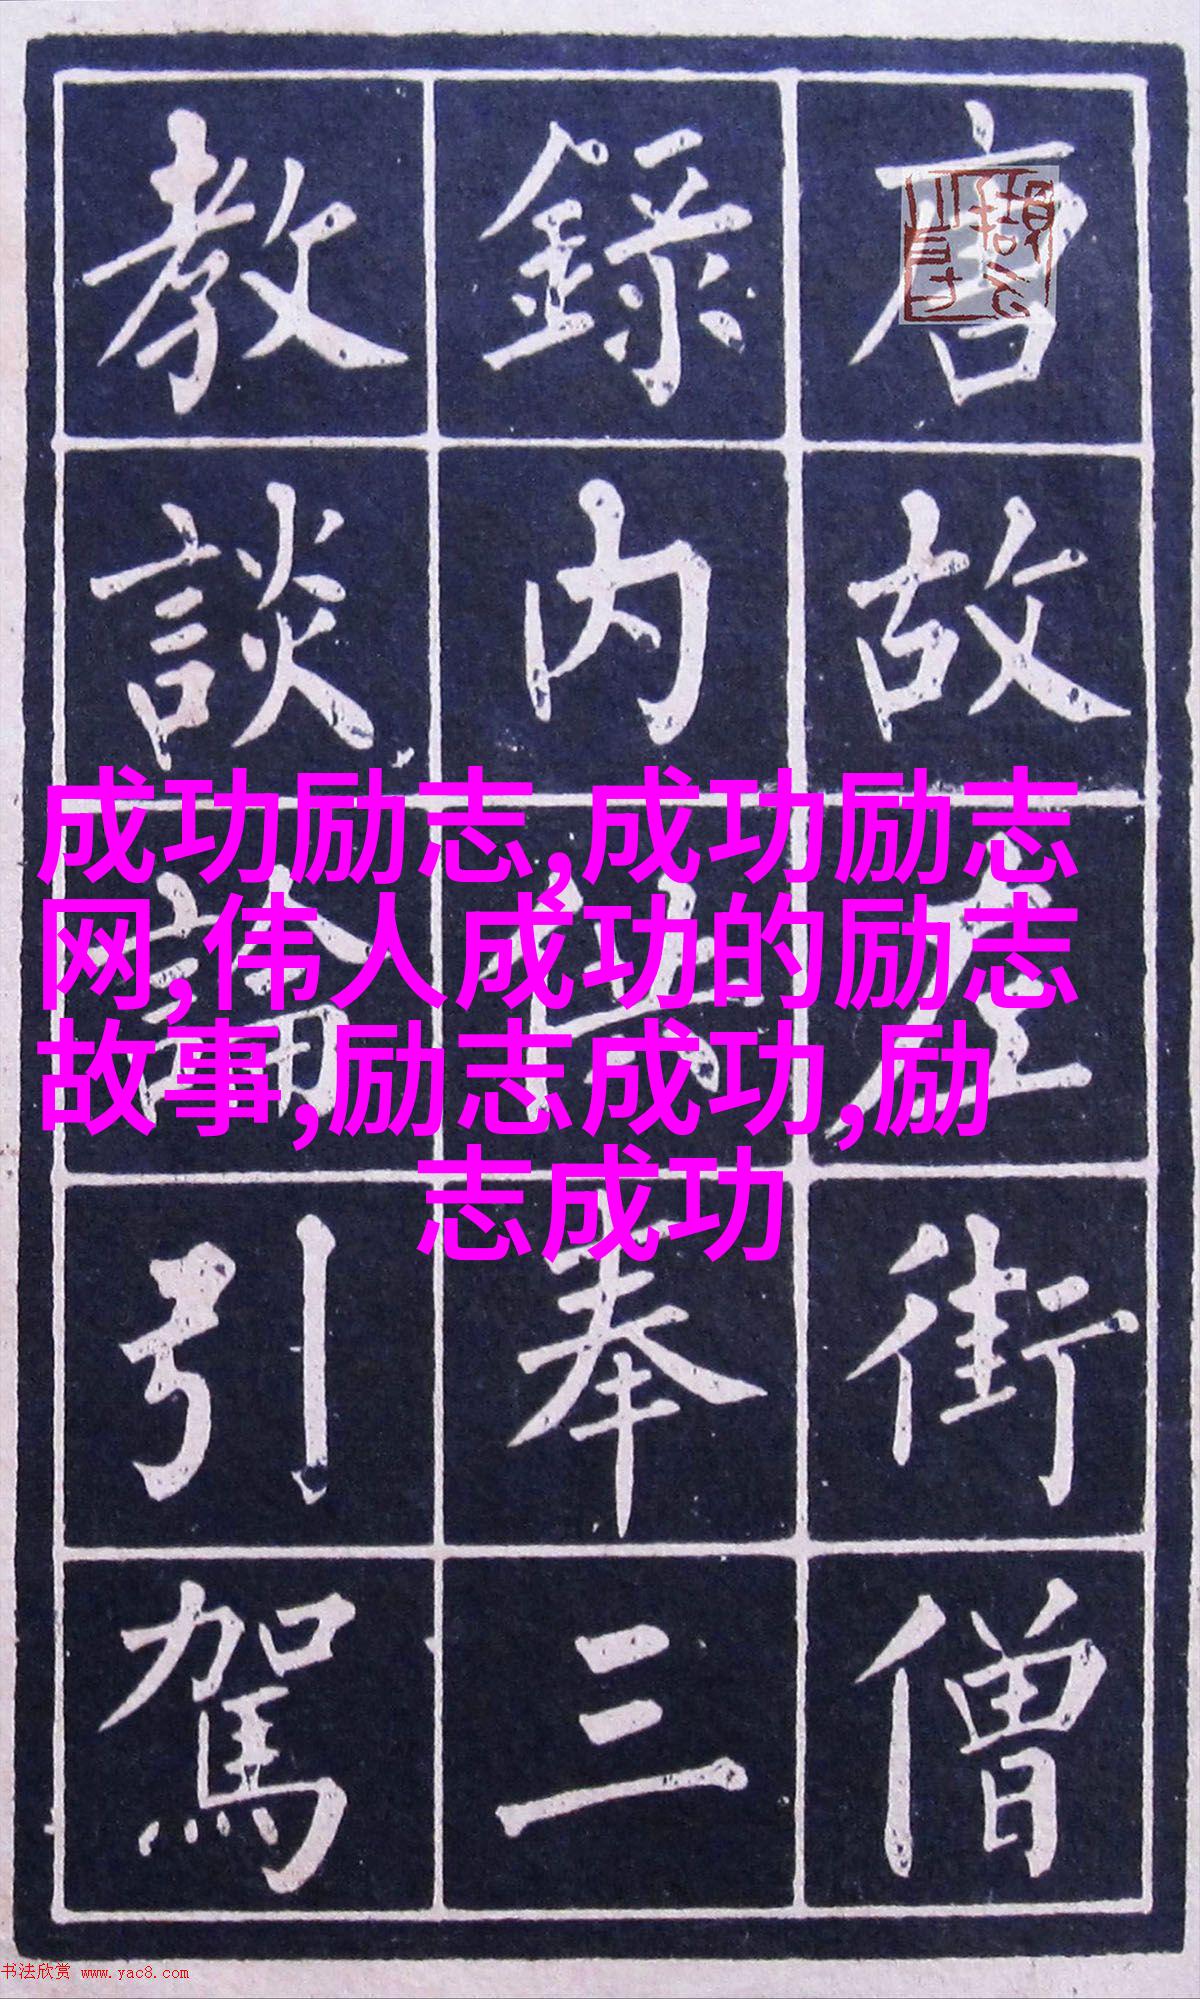 唐故左街僧
錄內供奉三
教談論引駕
成功励志,成功励志
网,伟人成功的励志
故事,励志成功,励
志成功
书法欣赏 www.yac8.com